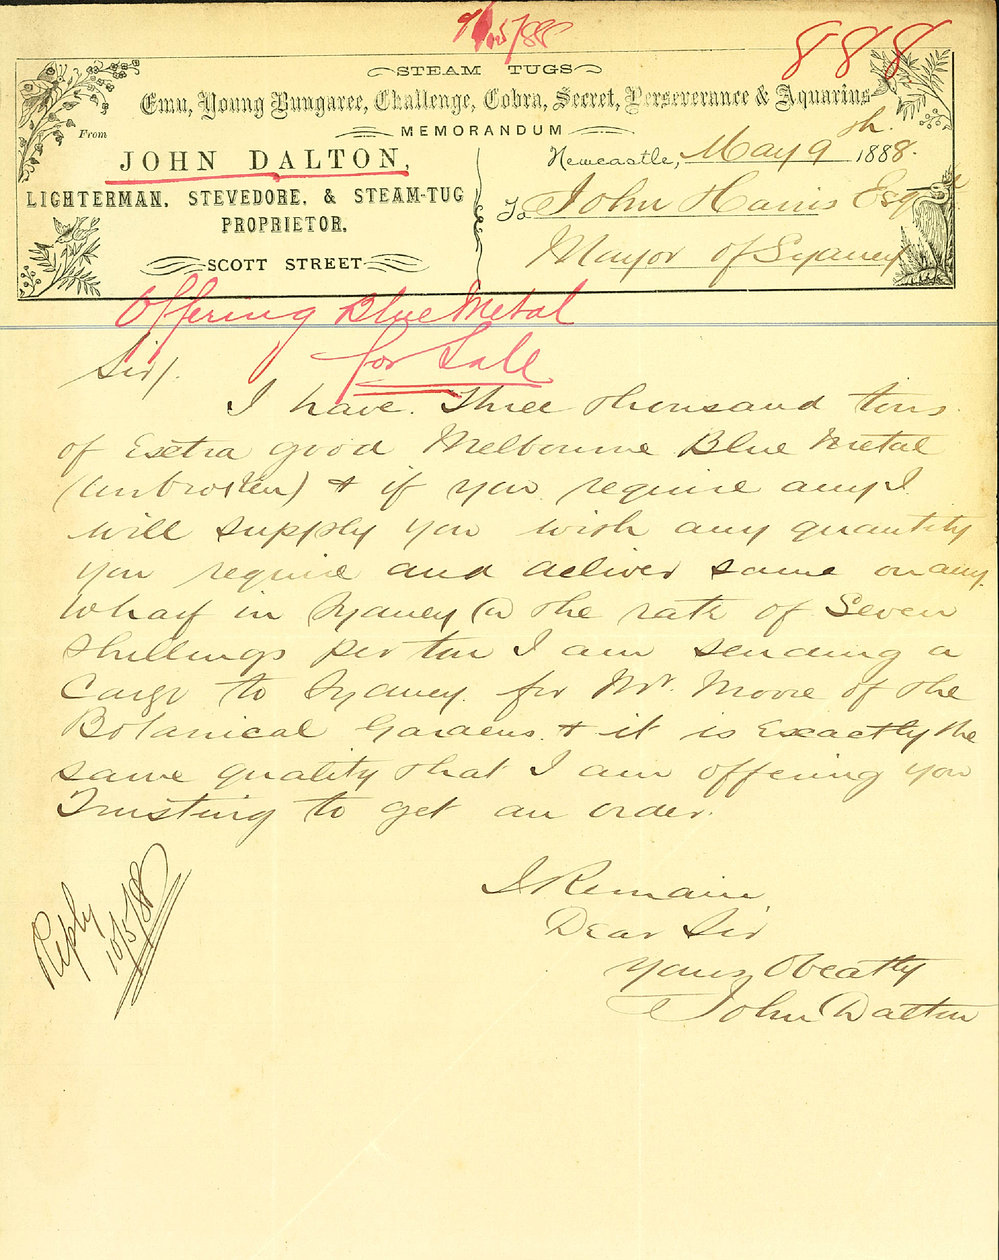 /5/88
888
STEAM TUGS
Emu, Young Bungaree, Challenge, Cobra, Secret, Perseverance & Aquarius
MEMORANDUM
From
JOHN DALTON,
LIGHTERMAN, STEVEDORE, & STEAM-TUG
PROPRIETOR,
SCOTT STREET
Newcastle, May 9th. 1888.
To John Harris Esqre
Mayor of Sydney
Offering Blue Metal
for Sale
Sir/.
I have Three thousand tons
of Exstra good Melbourne Blue Metal
(unbroken) & if you require any I
will supply you with any quantity
you require and deliver same on any
wharf in Sydney @ the rate of Seven
Shillings per ton I am sending a
Cargo to Sydney for Mr. Moore of the
Botanical Gardens & it is Exactly the
same quality that I am offering you
Trusting to get an order.
I Remain
Dear Sir
Yours Obeatly
John Dalton
Reply
10/5/88